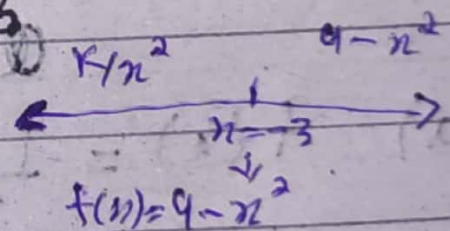 k/x² 9-x²
x=-3
f(x)=9-x²